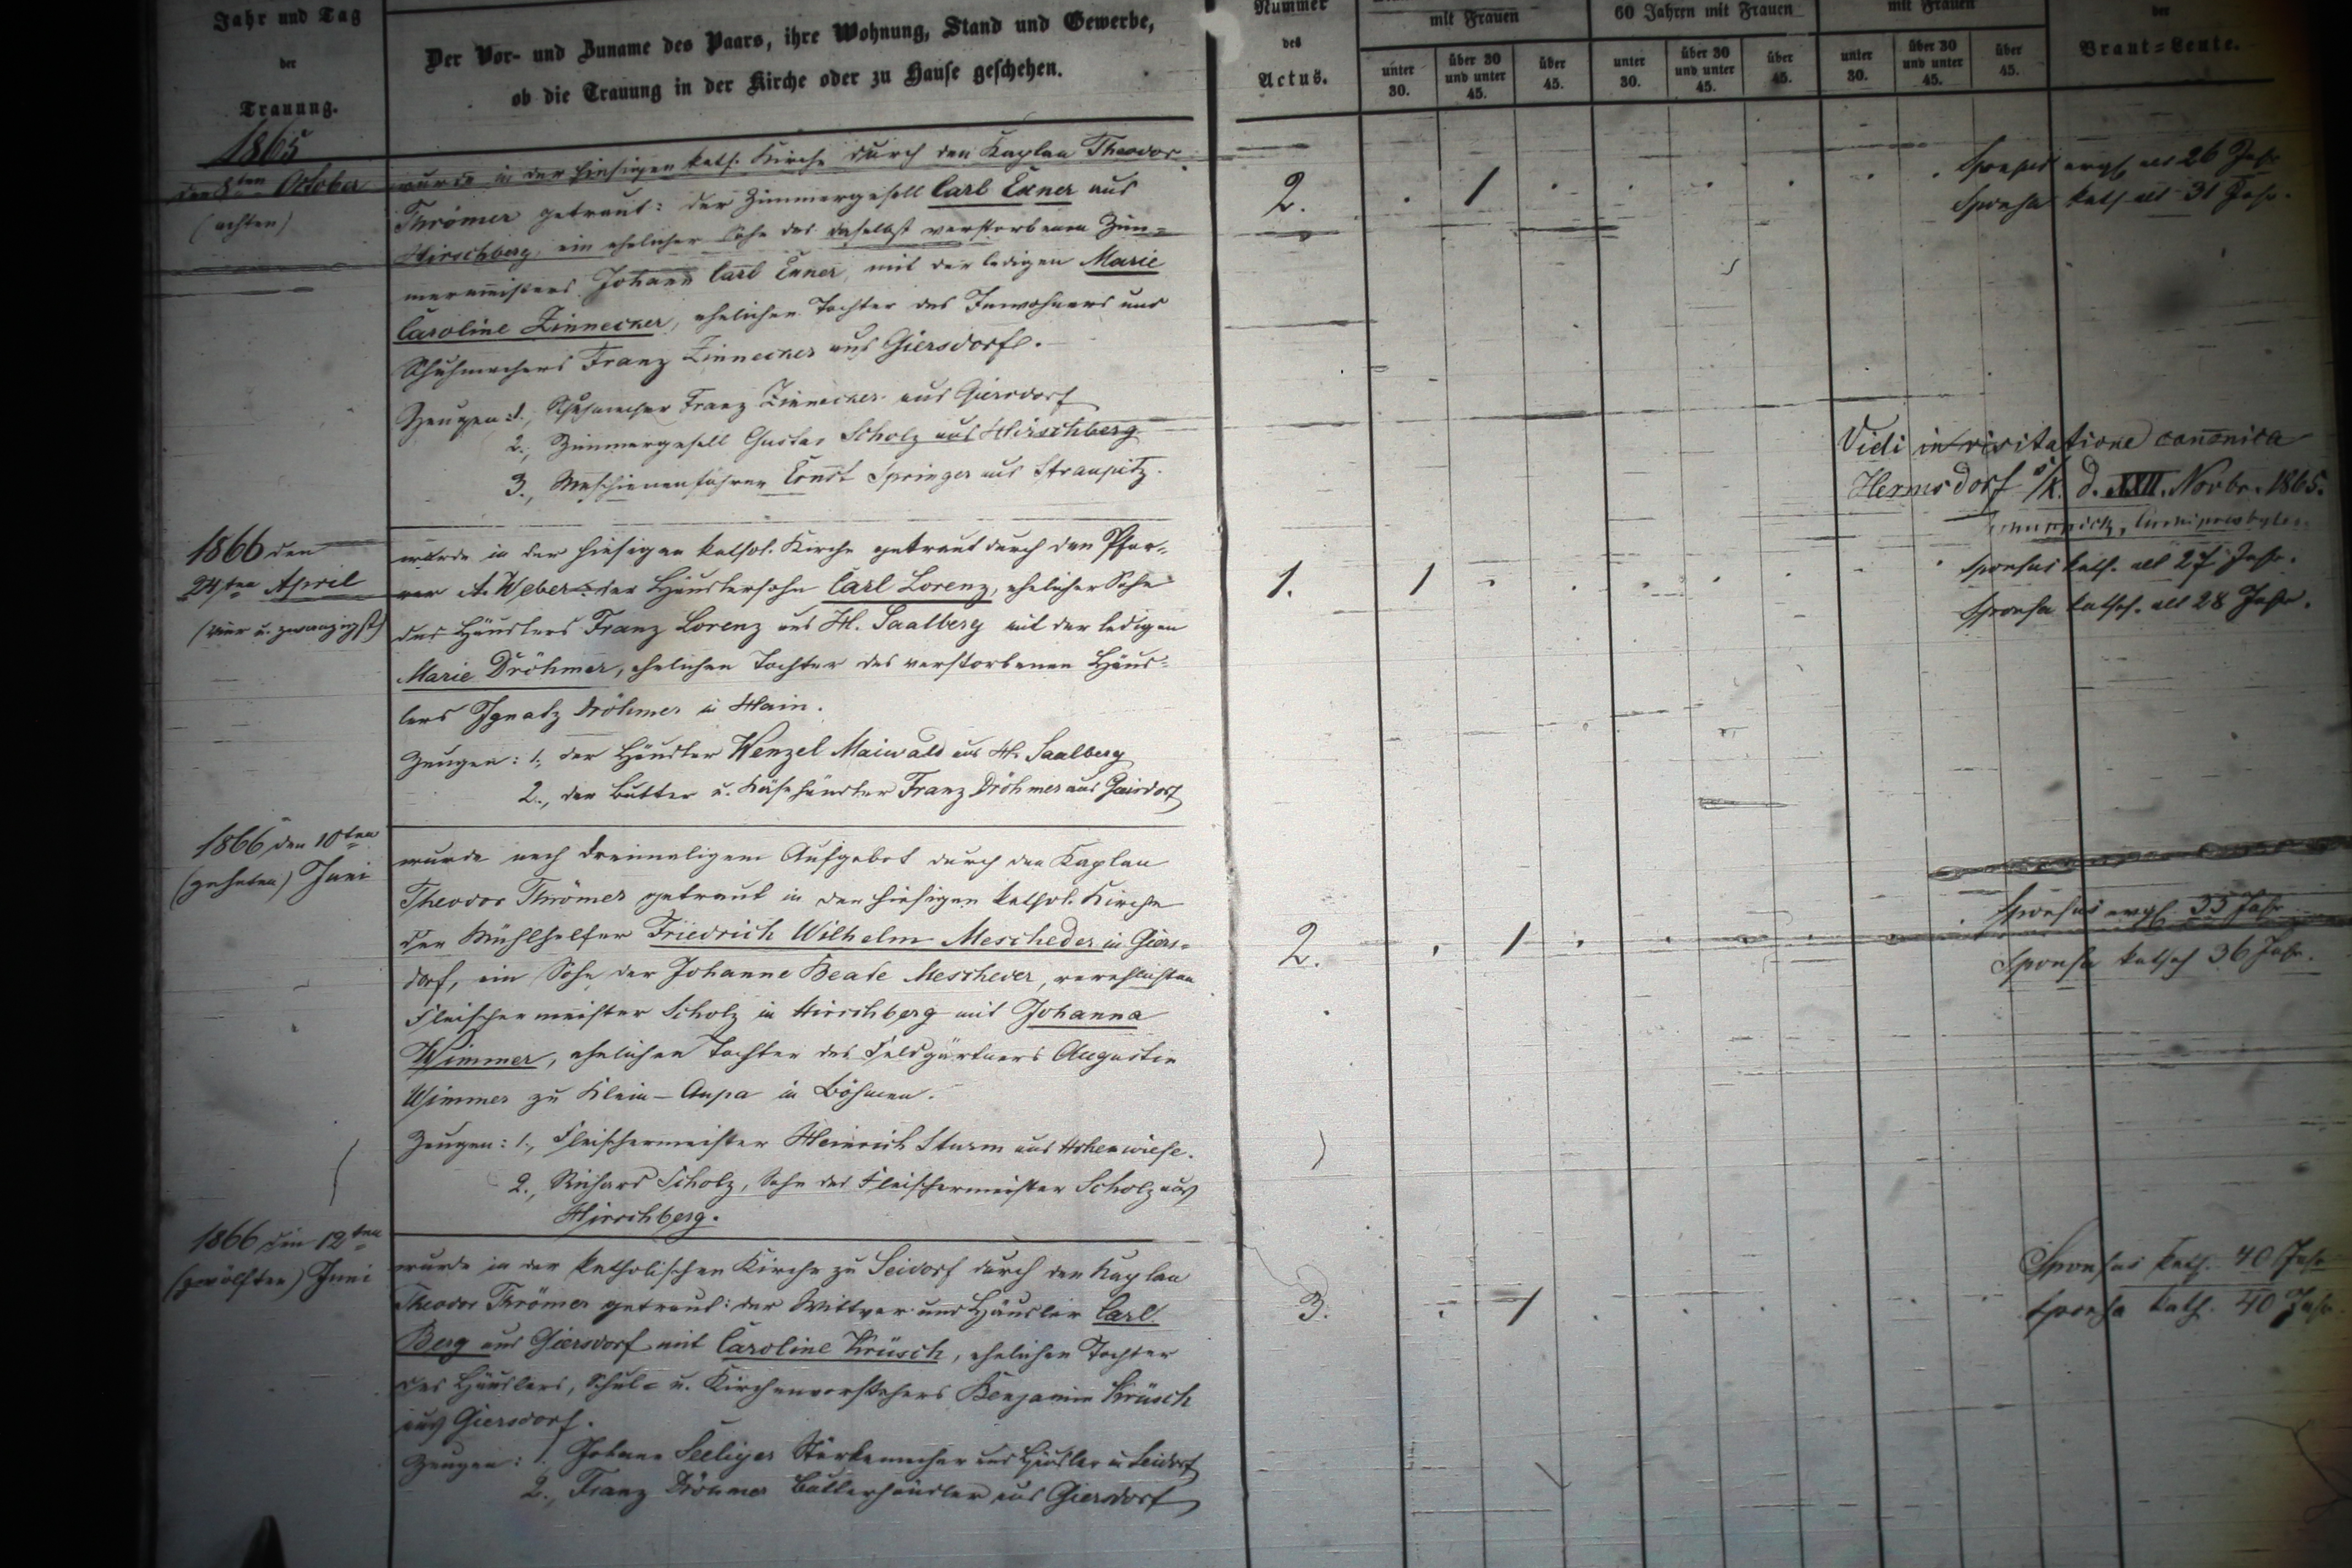 Jahr und Tag
der
Trauung.
Der Vor- und Zuname des Paars, ihre Wohnung, Stand und Gewerbe,
ob die Trauung in der Kirche oder zu Hause geschehen.
Nummer
des
Actus.
mit Frauen
60 Jahren mit Frauen
mit Frauen
der
Braut=Leute.
unter 30.
über 30 und unter 45.
über 45.
unter 30.
über 30 und unter 45.
über 45.
unter 30.
über 30 und unter 45.
über 45.
1865
den 8ten October
(achten)
wurde in der hiesigen kath. Kirche durch den Kaplan Theodor
Thrömer getraut: der Zimmergesell Carl Exner aus
Hirschberg, ein ehelicher Sohn des daselbst verstorbenen Zim=
mermeisters Johann Carl Exner, mit der ledigen Marie
Caroline Zinnecker, ehelichen Tochter des Inwohners und
Schuhmachers Franz Zinnecker aus Giersdorf.
Zeugen: 1., Schuhmacher Franz Zinnecker aus Giersdorf
2., Zimmergesell Gustav Scholz aus Hirschberg
3., Maschinenführer Ernst Springer aus Straupitz.
2.
1
Sponsus evgl. alt 26 Jahr
Sponsa kath alt 31 Jahr.
Vidi in visitatione canonica
Hermsdorf s/K. d. XXII. Novbr. 1865.
1866 den
24ten April
(vier u. zwanzigst)
wurde in der hiesigen kathol. Kirche getraut durch den Pfar=
rer A. Weber: der Häuslersohn Carl Lorenz, ehelicher Sohn
des Häuslers Franz Lorenz aus H. Saalberg mit der ledigen
Marie Dröhmer, ehelichen Tochter des verstorbenen Häus=
lers Ignatz Dröhmer in Hain.
Zeugen: 1., der Häusler Wenzel Maiwald aus H. Saalberg
2., der Butter u. Käsehändler Franz Dröhmer aus Giersdorf
1.
1
Sponsus kath. alt 27 Jahr.
Sponsa kathol. alt 28 Jahr.
1866 den 10ten
(zehnten) Juni
wurde nach dreimaligem Aufgebot durch den Kaplan
Theodor Thrömer getraut in der hiesigen kathol. Kirche
der Mühlhelfer Friedrich Wilhelm Mescheder in Giers=
dorf, ein Sohn der Johanne Beate Mescheder, verehlichten
Fleischermeister Scholz in Hirschberg mit Johanna
Wimmer, ehelichen Tochter des Feldgärtners Augustin
Wimmer zu Klein-Aupa in Böhmen.
Zeugen: 1., Fleischermeister Heinrich Sturm aus Hohenwiese.
2., Richard Scholz, Sohn des Fleischermeister Scholz aus
Hirschberg.
2.
1
Sponsus evgl. 35 Jahr
Sponsa kathol 36 Jahr.
1866 den 12ten
(zwölften) Juni
wurde in der katholischen Kirche zu Seidorf durch den Kaplan
Theodor Thrömer getraut: der Wittwer und Häusler Carl
Berg aus Giersdorf mit Caroline Krüsch, ehelichen Tochter
des Häuslers, Schul= u. Kirchenvorstehers Benjamin Krüsch
aus Giersdorf.
Zeugen: 1. Johann Seeliger Stärkemacher und Häusler in Seidorf
2., Franz Dröhmer Butterhändler aus Giersdorf
3.
1
Sponsus kath. 40 Jahr
Sponsa kath. 40 Jahr